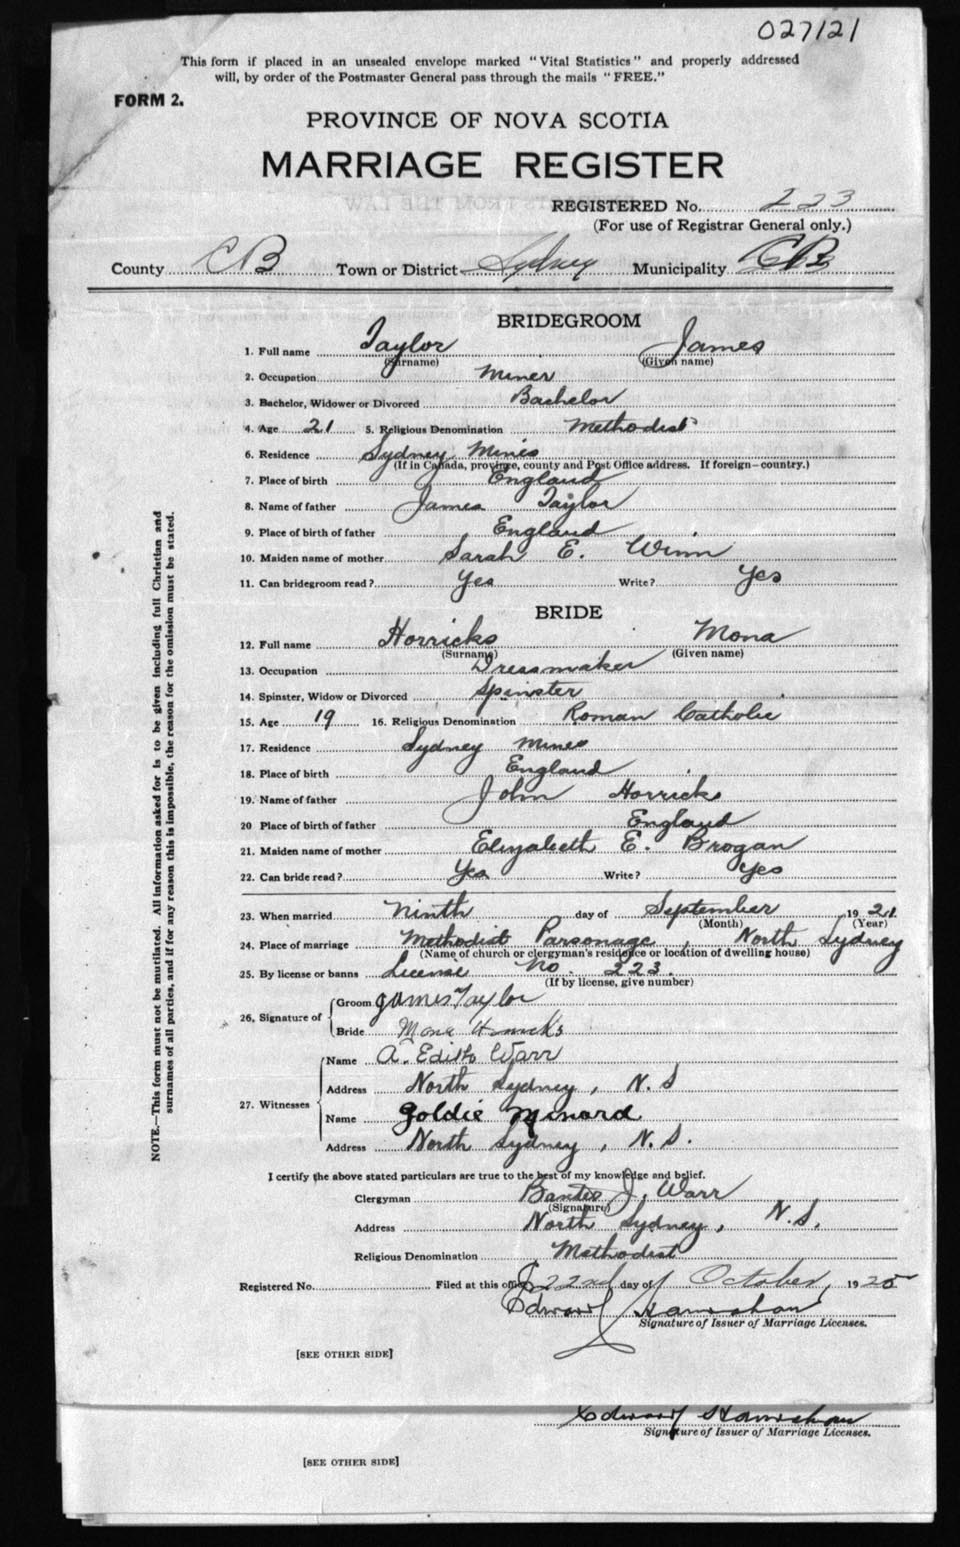 027121
This form if placed in an unsealed envelope marked "Vital Statistics" and properly addressed
will, by order of the Postmaster General pass through the mails "FREE."
FORM 2.
PROVINCE OF NOVA SCOTIA
MARRIAGE REGISTER
REGISTERED No. 223
(For use of Registrar General only.)
County CB Town or District Sydney Municipality CB
BRIDEGROOM
1. Full name Taylor James
(Surname) (Given name)
2. Occupation Miner
3. Bachelor, Widower or Divorced Bachelor
4. Age 21 5. Religious Denomination Methodist
6. Residence Sydney Mines
(If in Canada, province, county and Post Office address. If foreign—country.)
7. Place of birth England
8. Name of father James Taylor
9. Place of birth of father England
10. Maiden name of mother Sarah E. Winn
11. Can bridegroom read? Yes Write? Yes
BRIDE
12. Full name Horricks Mona
(Surname) (Given name)
13. Occupation Dressmaker
14. Spinster, Widow or Divorced Spinster
15. Age 19 16. Religious Denomination Roman Catholic
17. Residence Sydney Mines
18. Place of birth England
19. Name of father John Horricks
20 Place of birth of father England
21. Maiden name of mother Elizabeth E. Brogan
22. Can bride read? Yes Write? Yes
23. When married Ninth day of September 1921
(Month) (Year)
24. Place of marriage Methodist Parsonage, North Sydney
(Name of church or clergyman's residence or location of dwelling house)
25. By license or banns License No. 223.
(If by license, give number)
26. Signature of Groom James Taylor
Bride Mona
27. Witnesses Name A. Edith Warr
Address North Sydney, N.S
Name Goldie Minard
Address North Sydney, N.S.
I certify the above stated particulars are true to the best of my knowledge and belief.
Clergyman J. Warr
(Signature)
Address North Sydney, N.S.
Religious Denomination Methodist
Registered No. Filed at this office 22nd day of October, 1925
Edward
Signature of Issuer of Marriage Licenses.
[SEE OTHER SIDE]
Edward
Signature of Issuer of Marriage Licenses.
[SEE OTHER SIDE]
NOTE.—This form must not be mutilated. All information asked for is to be given including full Christian and
surnames of all parties, and if for any reason this is impossible, the reason for the omission must be stated.